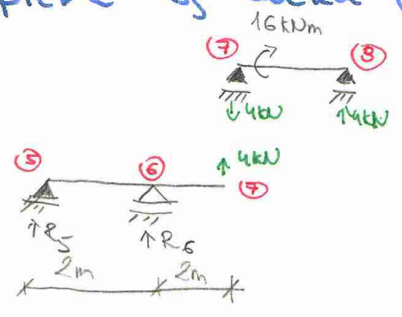 16kNm
7 8
↓4kN ↑4kN
5 6 ↑4kN
7
↑R5 ↑R6
2m 2m